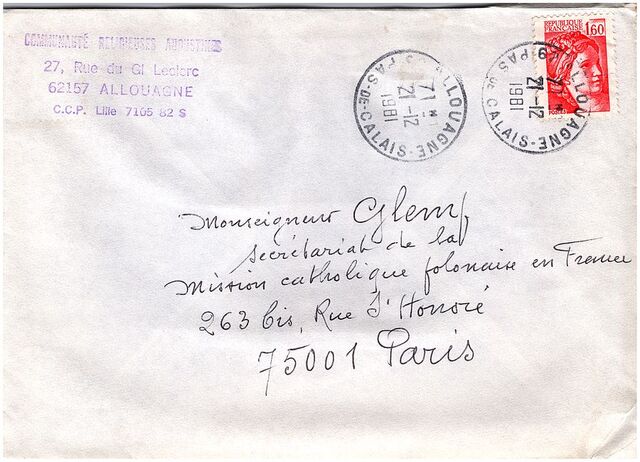 COMMUNAUTÉ RELIGIEUSES AUGUSTINES
27, Rue du Gl Leclerc
62157 ALLOUAGNE
C.C.P. Lille 7105 82 S
ALLOUAGNE
71-*
21-12
1981
PAS-DE-CALAIS
REPUBLIQUE
FRANCAISE 1,60
ALLOUAGNE
71-*
21-12
1981
PAS-DE-CALAIS
Monseigneur Glemp
secrétariat de la
Mission catholique polonaise en France
263 bis, Rue St Honoré
75001 Paris